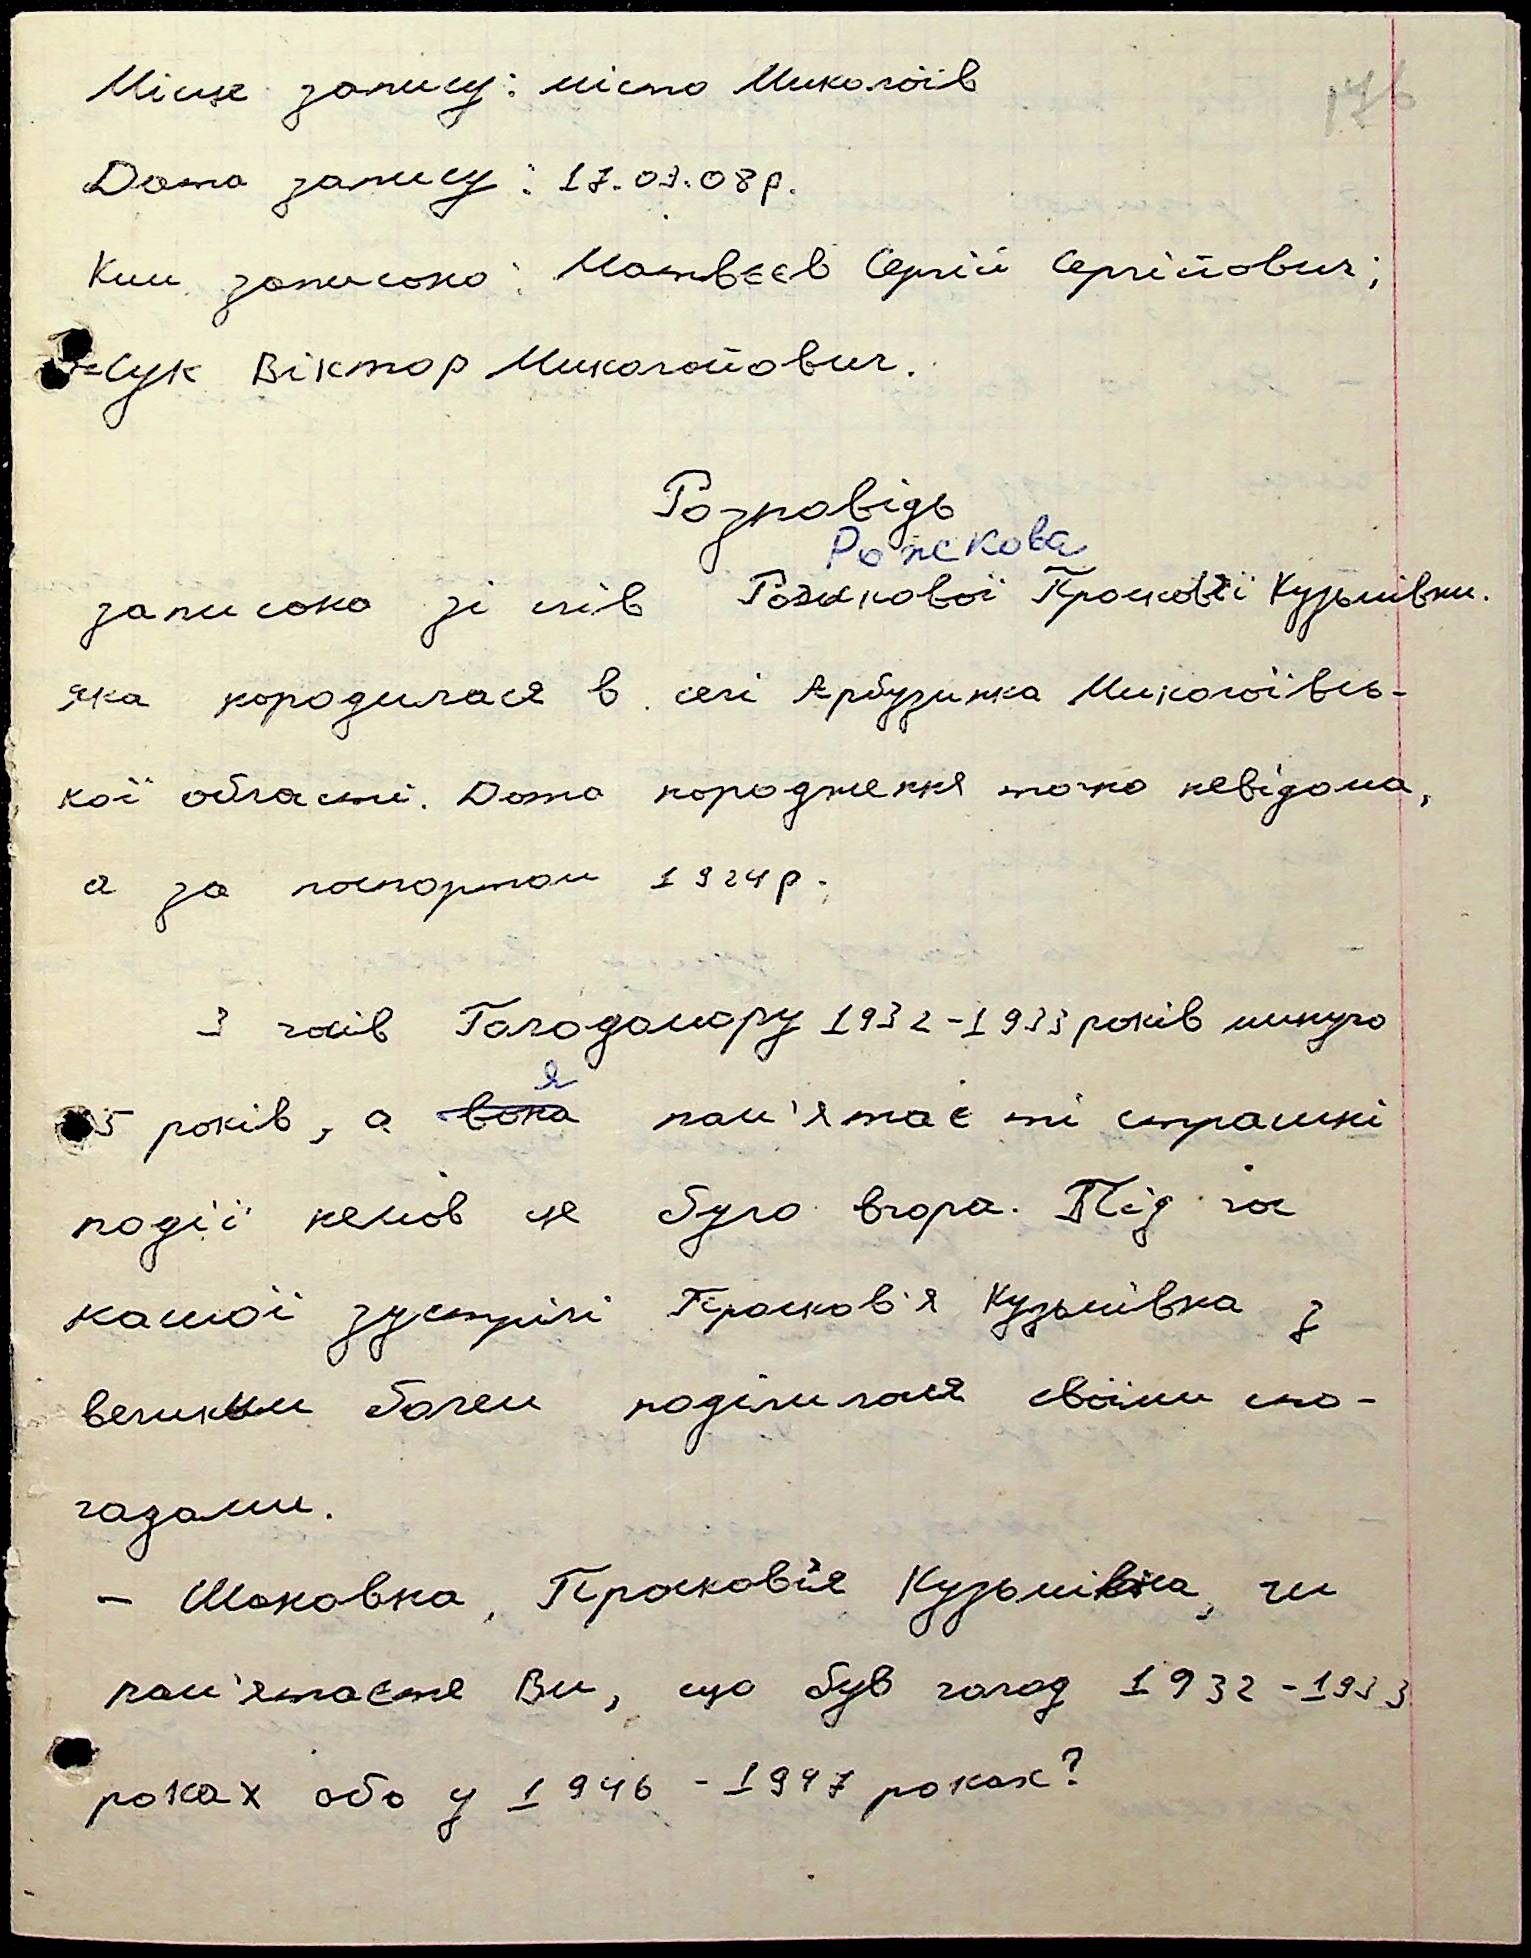 176
Місце запису: місто Миколаїв
Дата запису: 17.03.08р.
Ким записано: Матвєєв Сергій Сергійович;
Віктор Миколайович.
Розповідь
Рожкова
записано зі слів Рожкової Прасковії Кузьмівни.
яка народилася в селі Арбузинка Миколаївсь-
кої області. Дата народження точно невідома,
а за паспортом 1924р.
З часів Голодомору 1932-1933 років минуло
75 років, а вона я пам'ятає ті страшні
події немов це було вчора. Під час
нашої зустрічі Прасков'я Кузьмівна з
великим болем поділилася своїми спо-
гадами.
- Шановна, Прасков'я Кузьмівна, чи
пам'ятаєте Ви, що був голод 1932-1933
роках або у 1946-1947 роках?